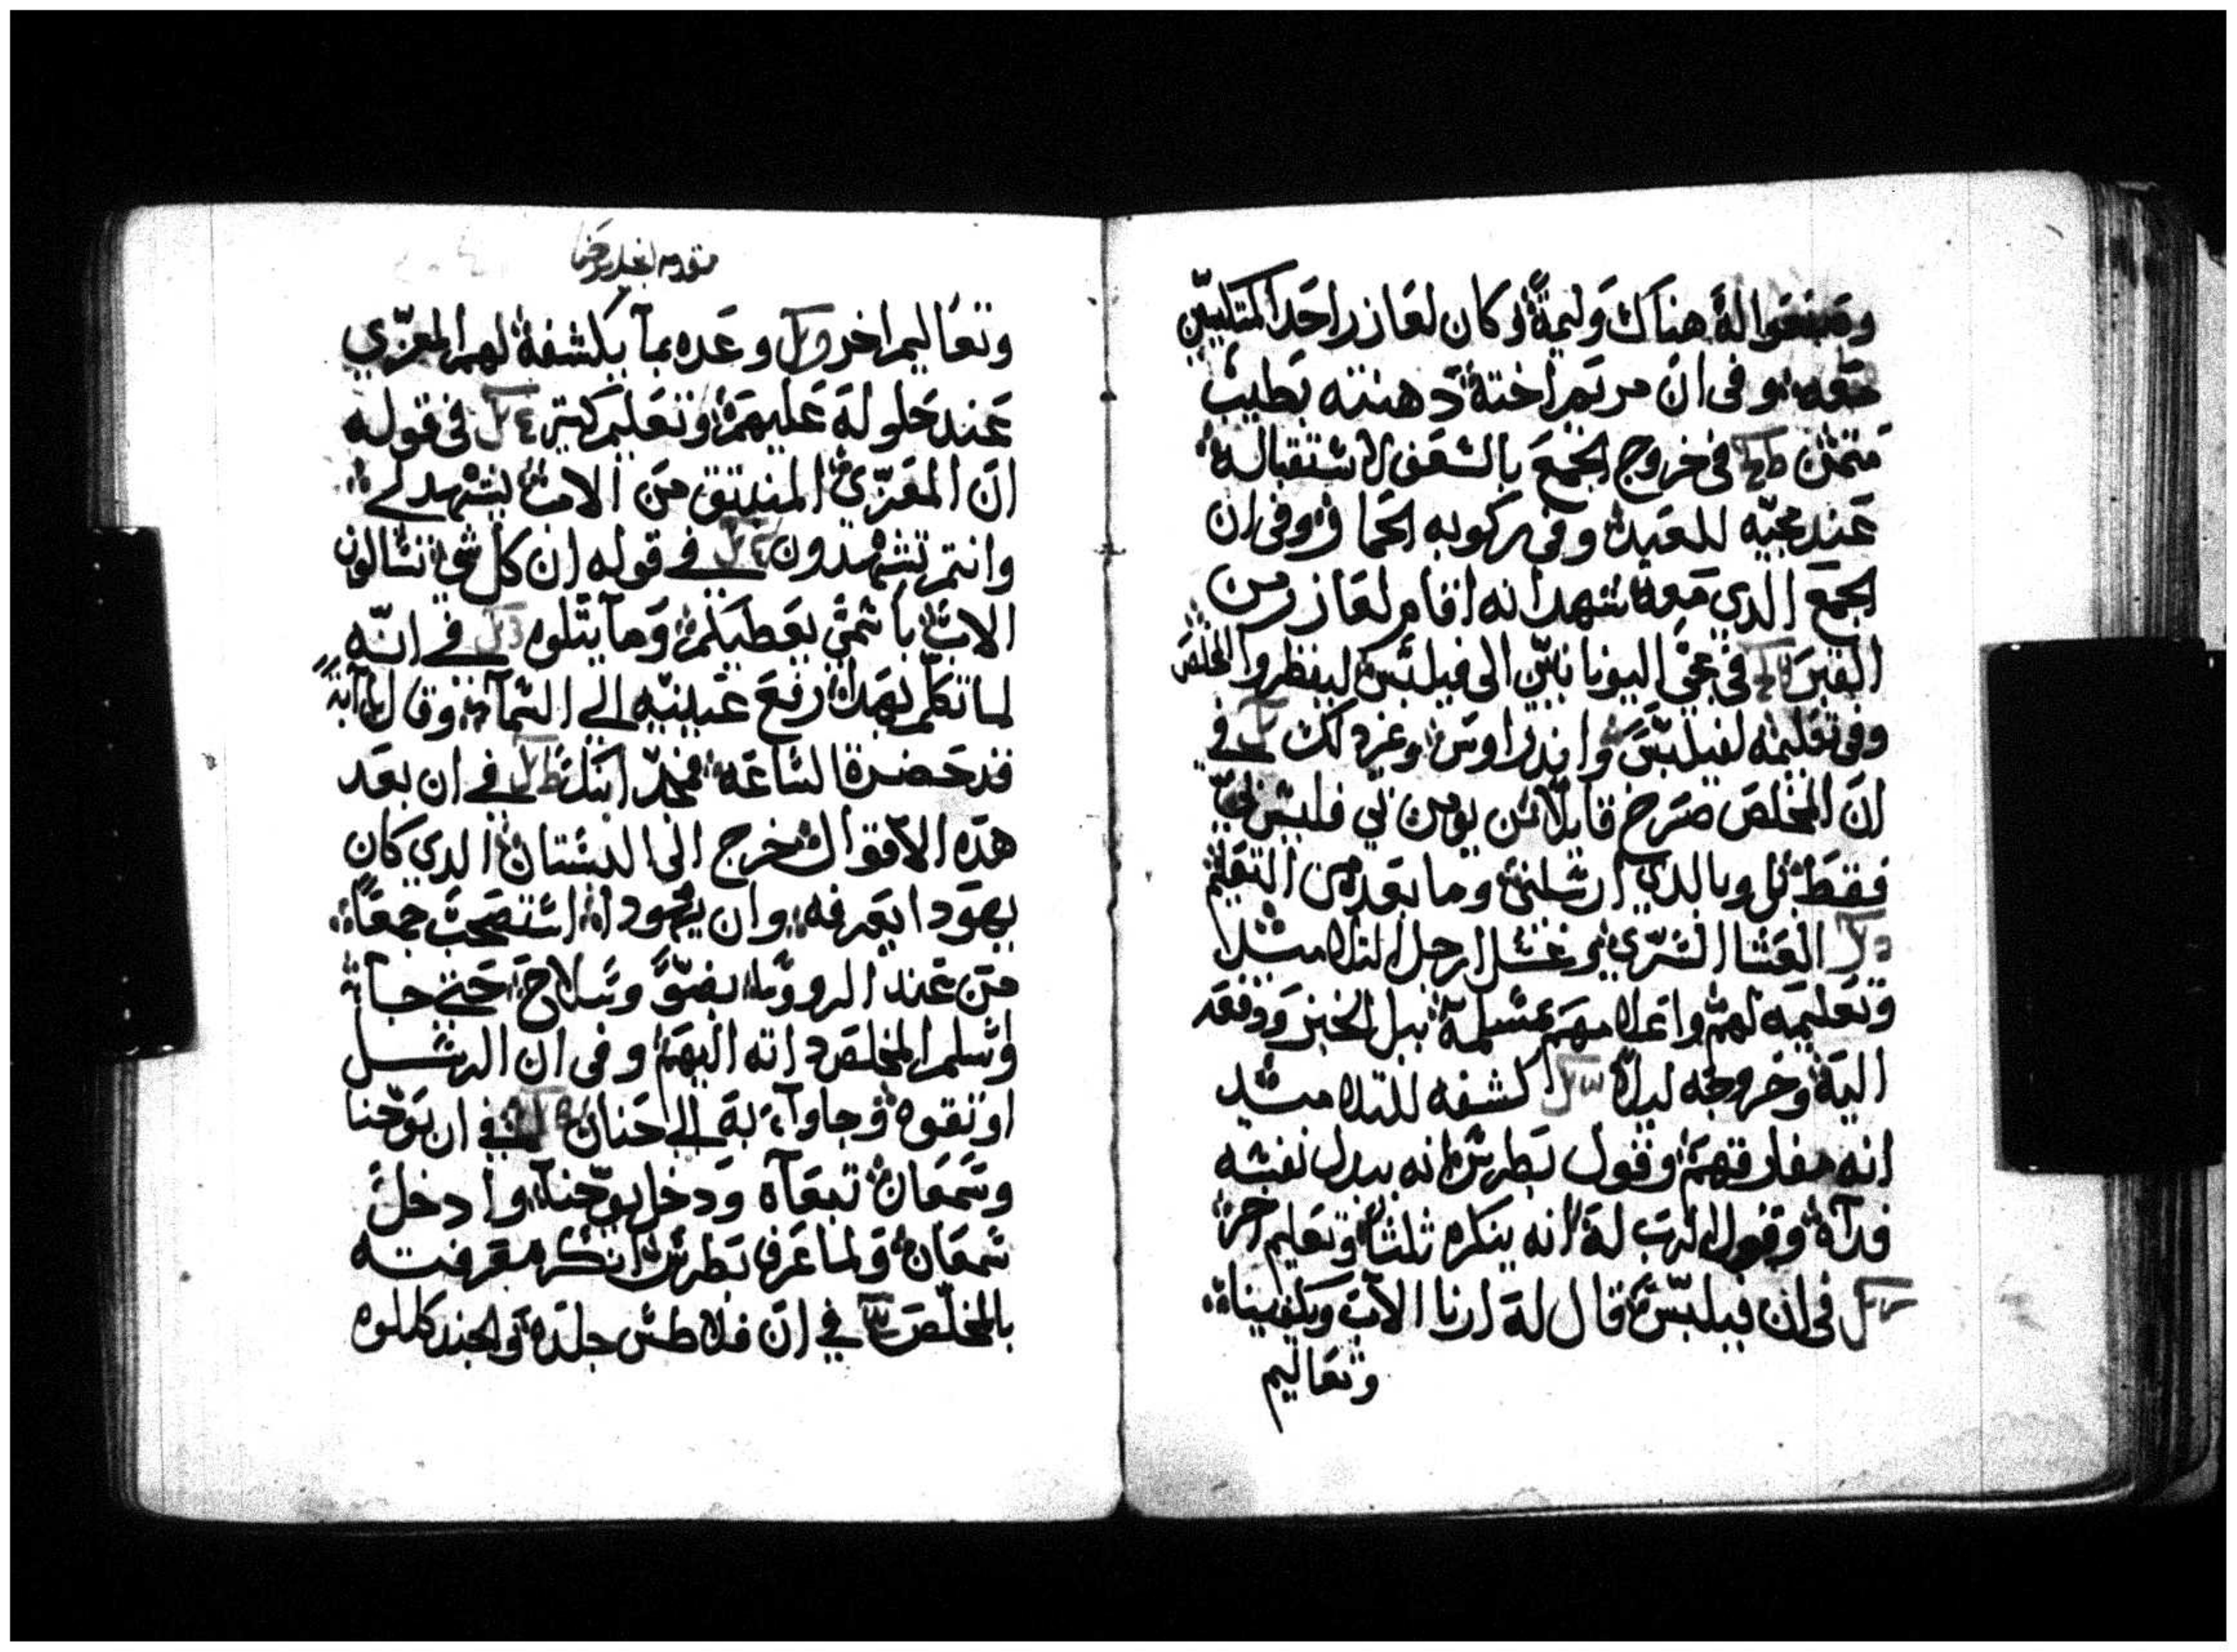 وصنعوا له هناك وليمة وكان لعازر احد المتكيين
معه وفى ان مريم اخته دهنته بطيب
مثمن في خروج الجمع بالسعف لاستقباله
عند مجيه للعيد وفى ركوبه الحمار وفى ان
الجمع الدي معه شهد انه اقام لعازر من
القبر في مجى اليونانيين الى فيلبس لينظروا المخلص
وفى تعليمه لفيلبس واندراوس وغير دلك في
ان المخلص صرخ قايلا من يومن بي فليس بي
فقط بل وبالدي ارسلني وما بعده من التعليم
العشا السري وغسل ارجل التلاميد
وتعليمه لهم واعلامهم بمسلمه ببل الخبز ودفعه
اليه وخروجه ليلا كشفه للتلاميد
انه مفارقهم وقول بطرس انه يبدل نفسه
فداه وقول الرب له انه ينكره ثلثا وتعليم اخر
في ان فيلبس قال له ارنا الاب ويكفينا
وتعاليم
وتعاليم اخر وعده بما يكشفه لهم المعزي
عند حلوله عليهم وتعليم كتير في قوله
ان المعزي المنبتق من الاب يشهد لي
وانتم تشهدون في قوله ان كل شي تسالون
الاب باسمي يعطيكم وما يتلوه في انه
لما تكلم بهدا رفع عينيه الى السما وقال يا ابة
قد حضرة الساعه فمجد ابنك في ان بعد
هده الاقوال خرج الى البستان الدي كان
يهودا يعرفه وان يهودا استصحب جمعا
من عند الروسا بضو وسلاح حتى جا
وسلم المخلص داته اليهم وفى ان الرسل
اوتقوه وجاوا به الى حنان في ان يوحنا
وسمعان تبعاه ودخل يوحنا وادخل
سمعان ولما عرف بطرس انكر معرفته
بالمخلص في ان فلاطس جلده والجند كللوه